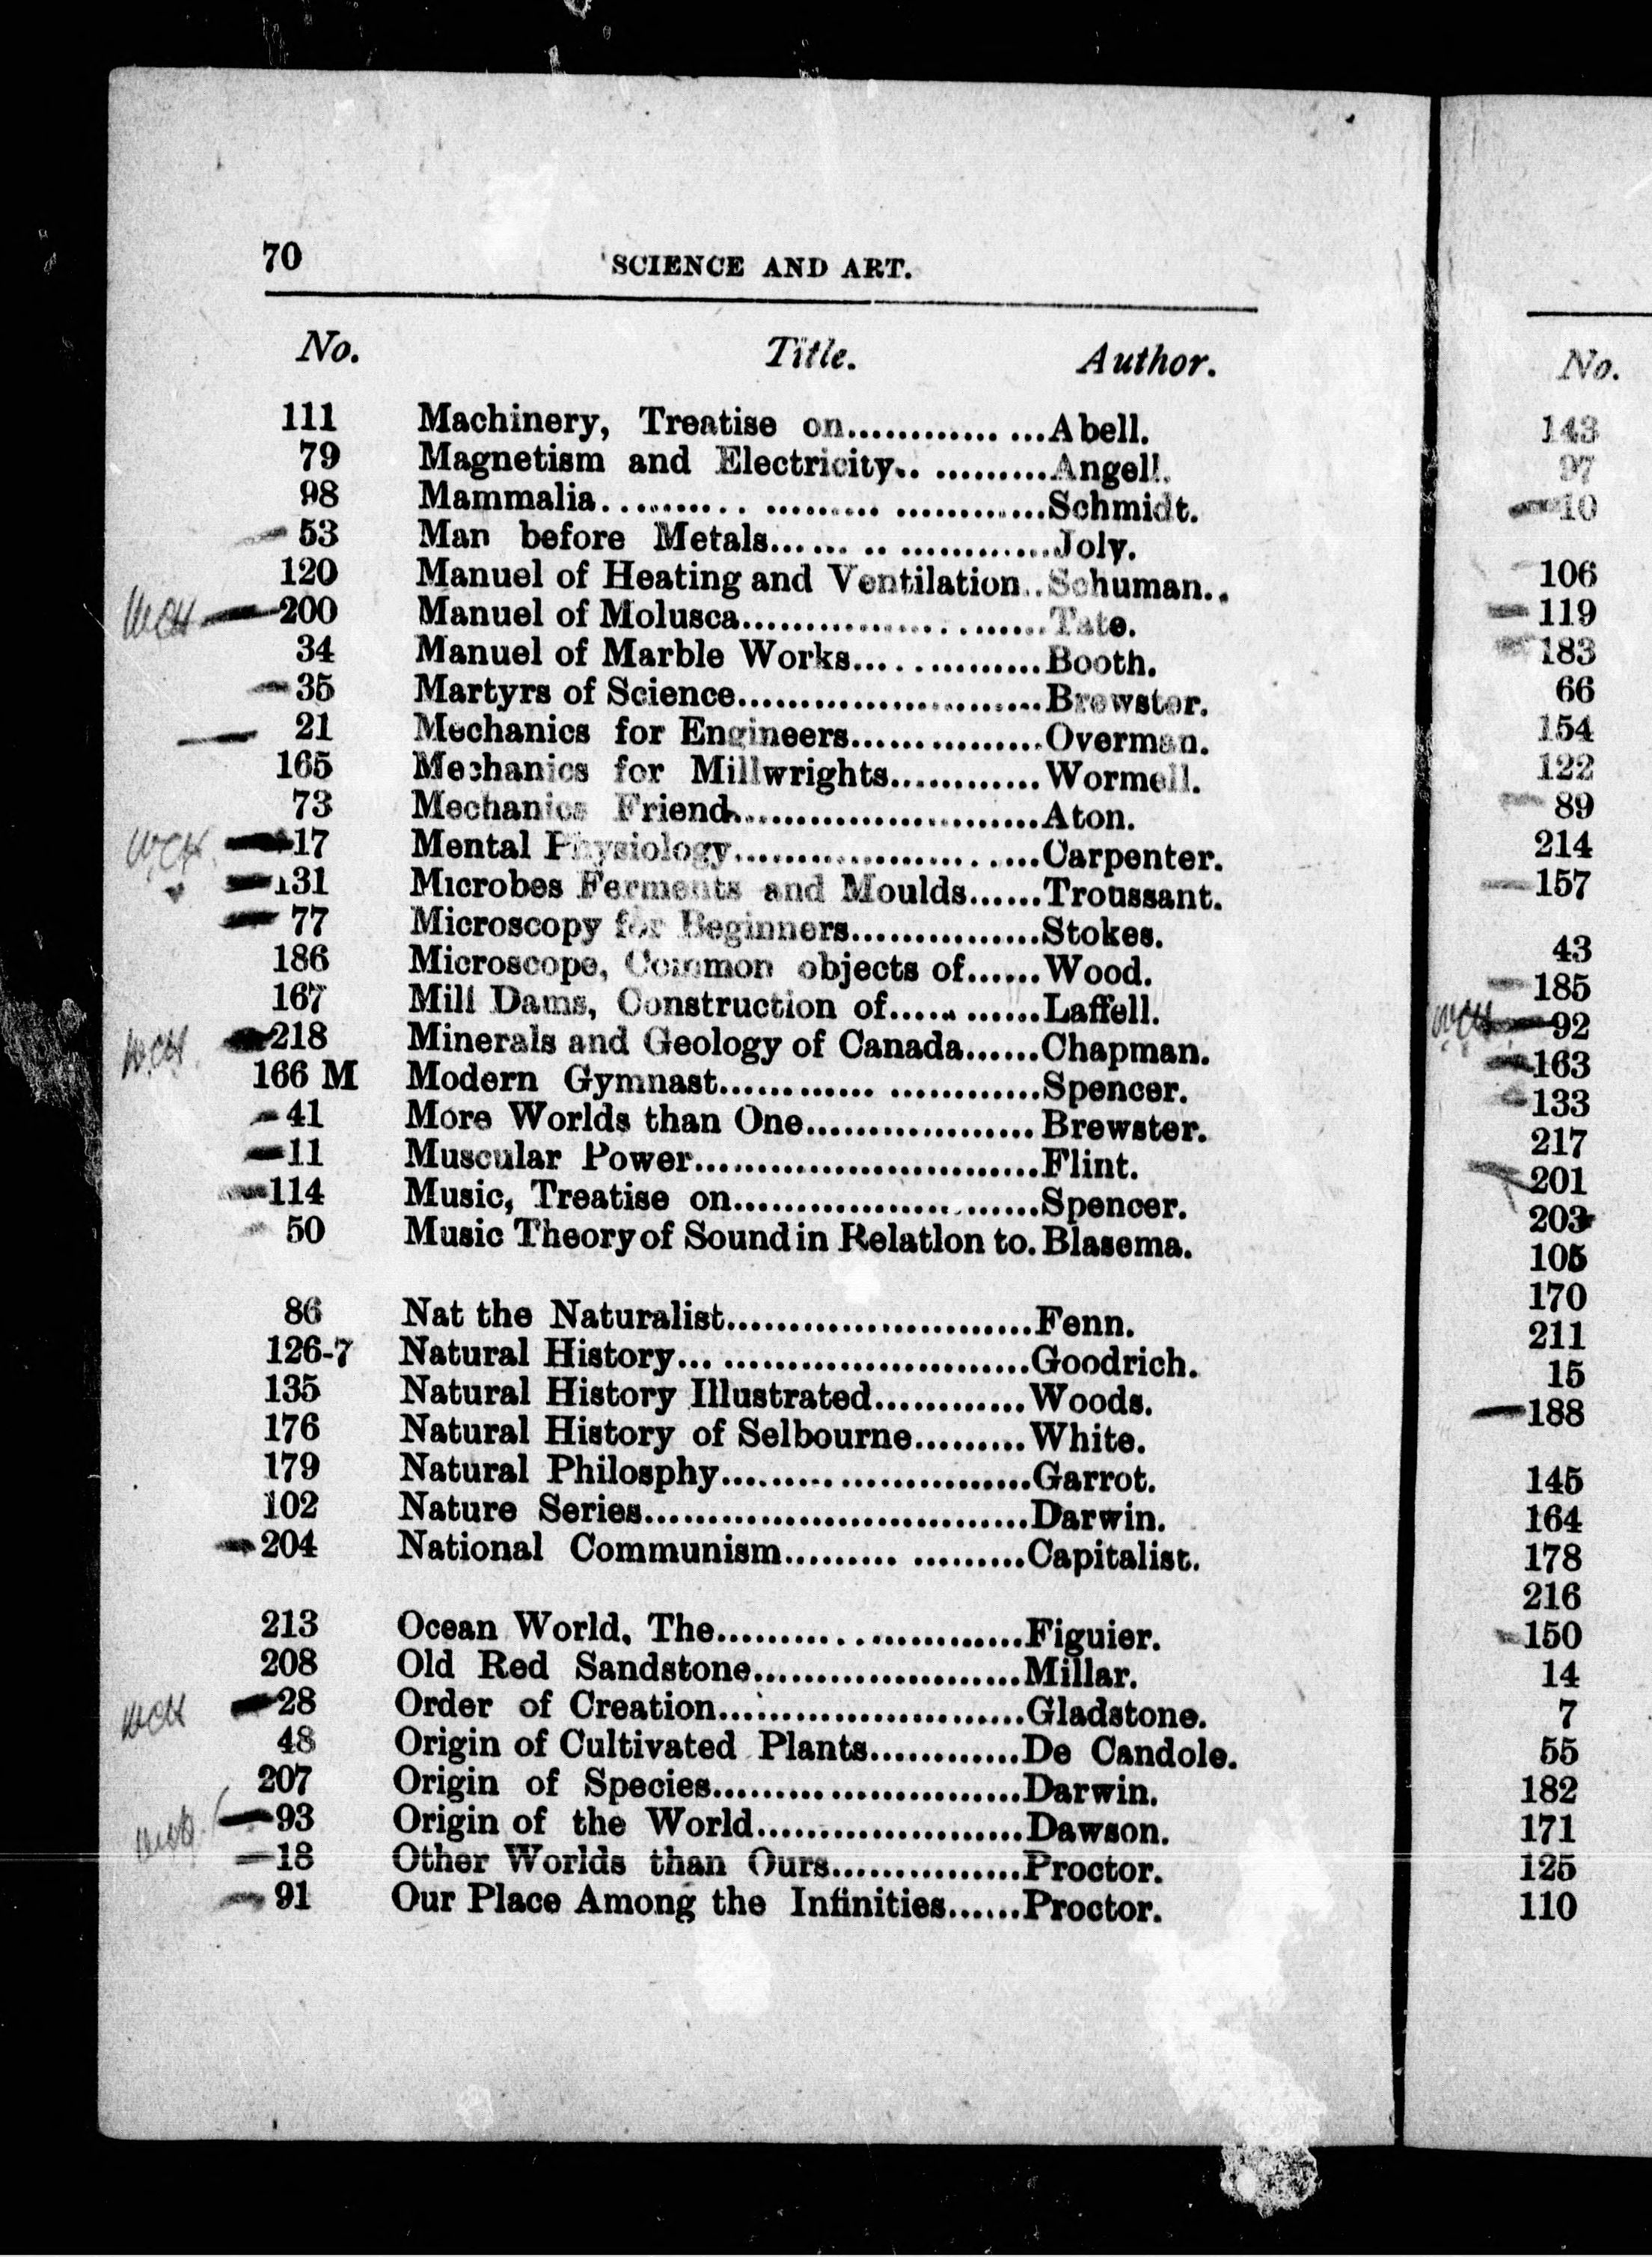 70 SCIENCE AND ART.
No. Title. Author.
111 Machinery, Treatise on............. ...Abell.
79 Magnetism and Electricity.. ..........Angell.
98 Mammalia........... ......... ............Schmidt.
53 Man before Metals...... .. ............Joly.
120 Manuel of Heating and Ventilation..Schuman..
WCH 200 Manuel of Molusca........................Tate.
34 Manuel of Marble Works...............Booth.
35 Martyrs of Science........................Brewster.
21 Mechanics for Engineers...............Overman.
165 Mechanics for Millwrights............Wormell.
73 Mechanics Friend........................Aton.
WCH 17 Mental Physiology........................Carpenter.
131 Microbes Ferments and Moulds......Troussant.
77 Microscopy for Beginners...............Stokes.
186 Microscope, Common objects of......Wood.
167 Mill Dams, Construction of............Laffell.
WCH 218 Minerals and Geology of Canada......Chapman.
166 M Modern Gymnast............ ............Spencer.
41 More Worlds than One..................Brewster.
11 Muscular Power...........................Flint.
114 Music, Treatise on........................Spencer.
50 Music Theory of Sound in Relatlon to.Blasema.
86 Nat the Naturalist........................Fenn.
126-7 Natural History... ........................Goodrich.
135 Natural History Illustrated............Woods.
176 Natural History of Selbourne.........White.
179 Natural Philosphy........................Garrot.
102 Nature Series..............................Darwin.
204 National Communism......... .........Capitalist.
213 Ocean World, The........................Figuier.
208 Old Red Sandstone.....................Millar.
WCH 28 Order of Creation........................Gladstone.
48 Origin of Cultivated Plants............De Candole.
207 Origin of Species........................Darwin.
93 Origin of the World.....................Dawson.
18 Other Worlds than Ours...............Proctor.
91 Our Place Among the Infinities......Proctor.
No.
143
97
10
106
119
183
66
154
122
89
214
157
43
185
WCH 92
163
133
217
201
203
105
170
211
15
188
145
164
178
216
150
14
7
55
182
171
125
110